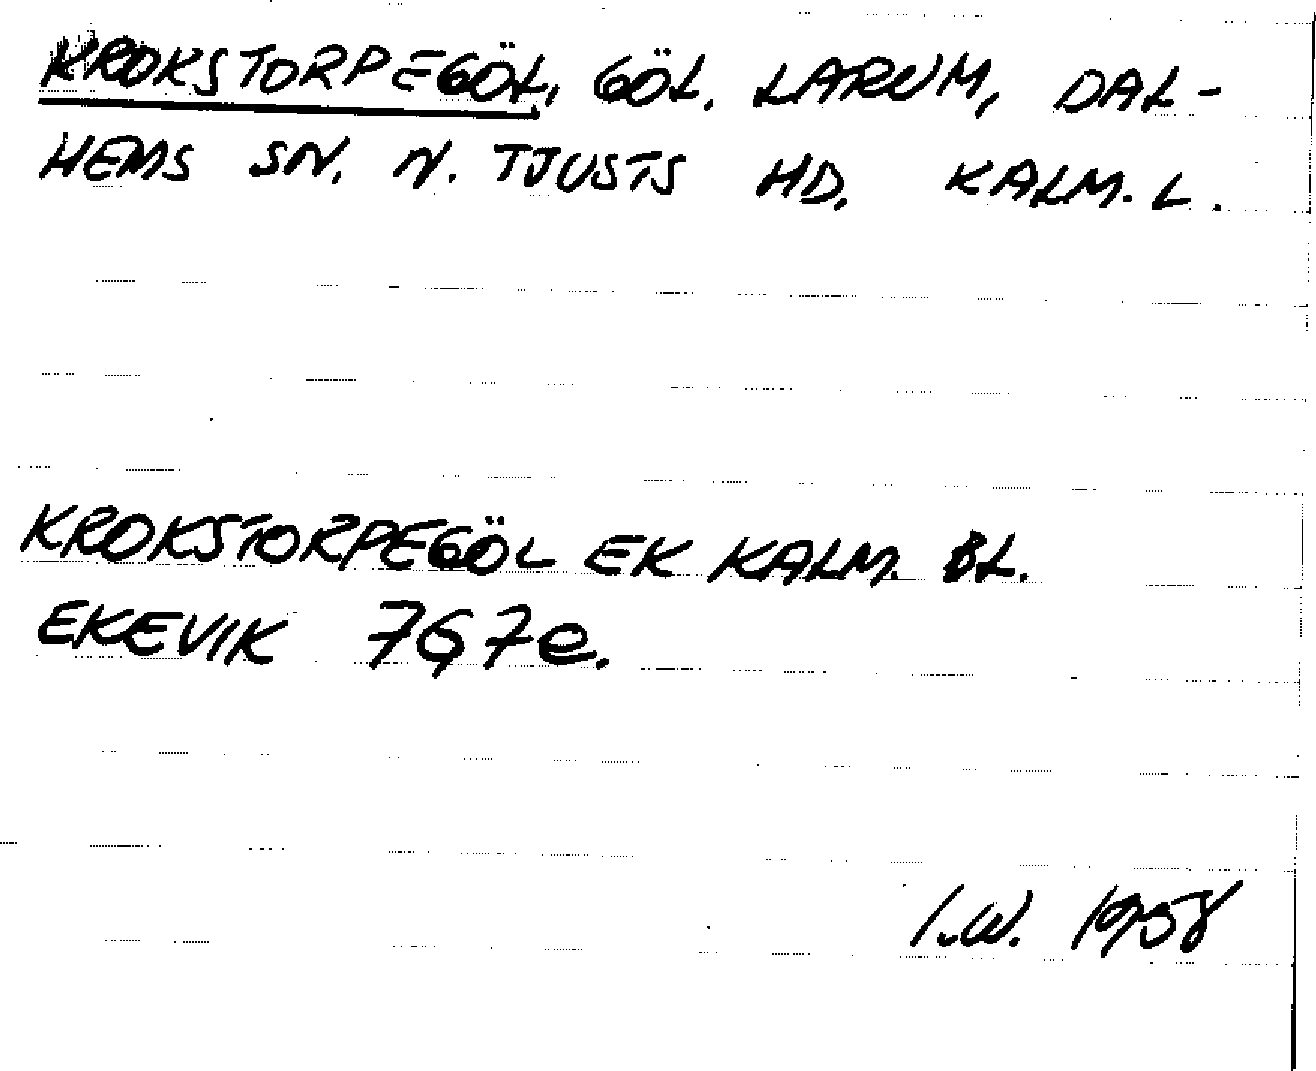 KROKSTORPEGÖL, GÖL. LARUM, DAL-
HEMS SN. N. TJUSTS HD. KALM. L.
KROKSTORPEGÖL EK KALM. BL.
EKEVIK 7G7e.
I.W. 1958